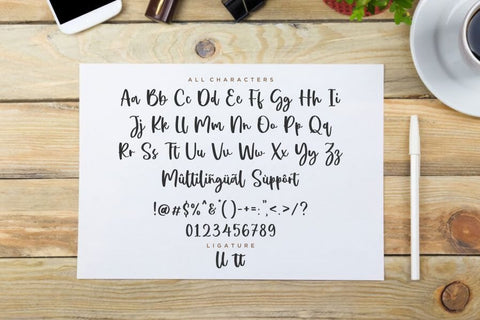 ALL CHARACTERS
Aa Bb Cc Dd Ee Ff Gg Hh Ii
Jj Kk Ll Mm Nn Oo Pp Qq
Rr Ss Tt Uu Vv Ww Xx Yy Zz
Mùltiliñgüäl Sùppôrt
!@#$%^&*()-+=:",<.>/?
0123456789
LIGATURE
ll tt